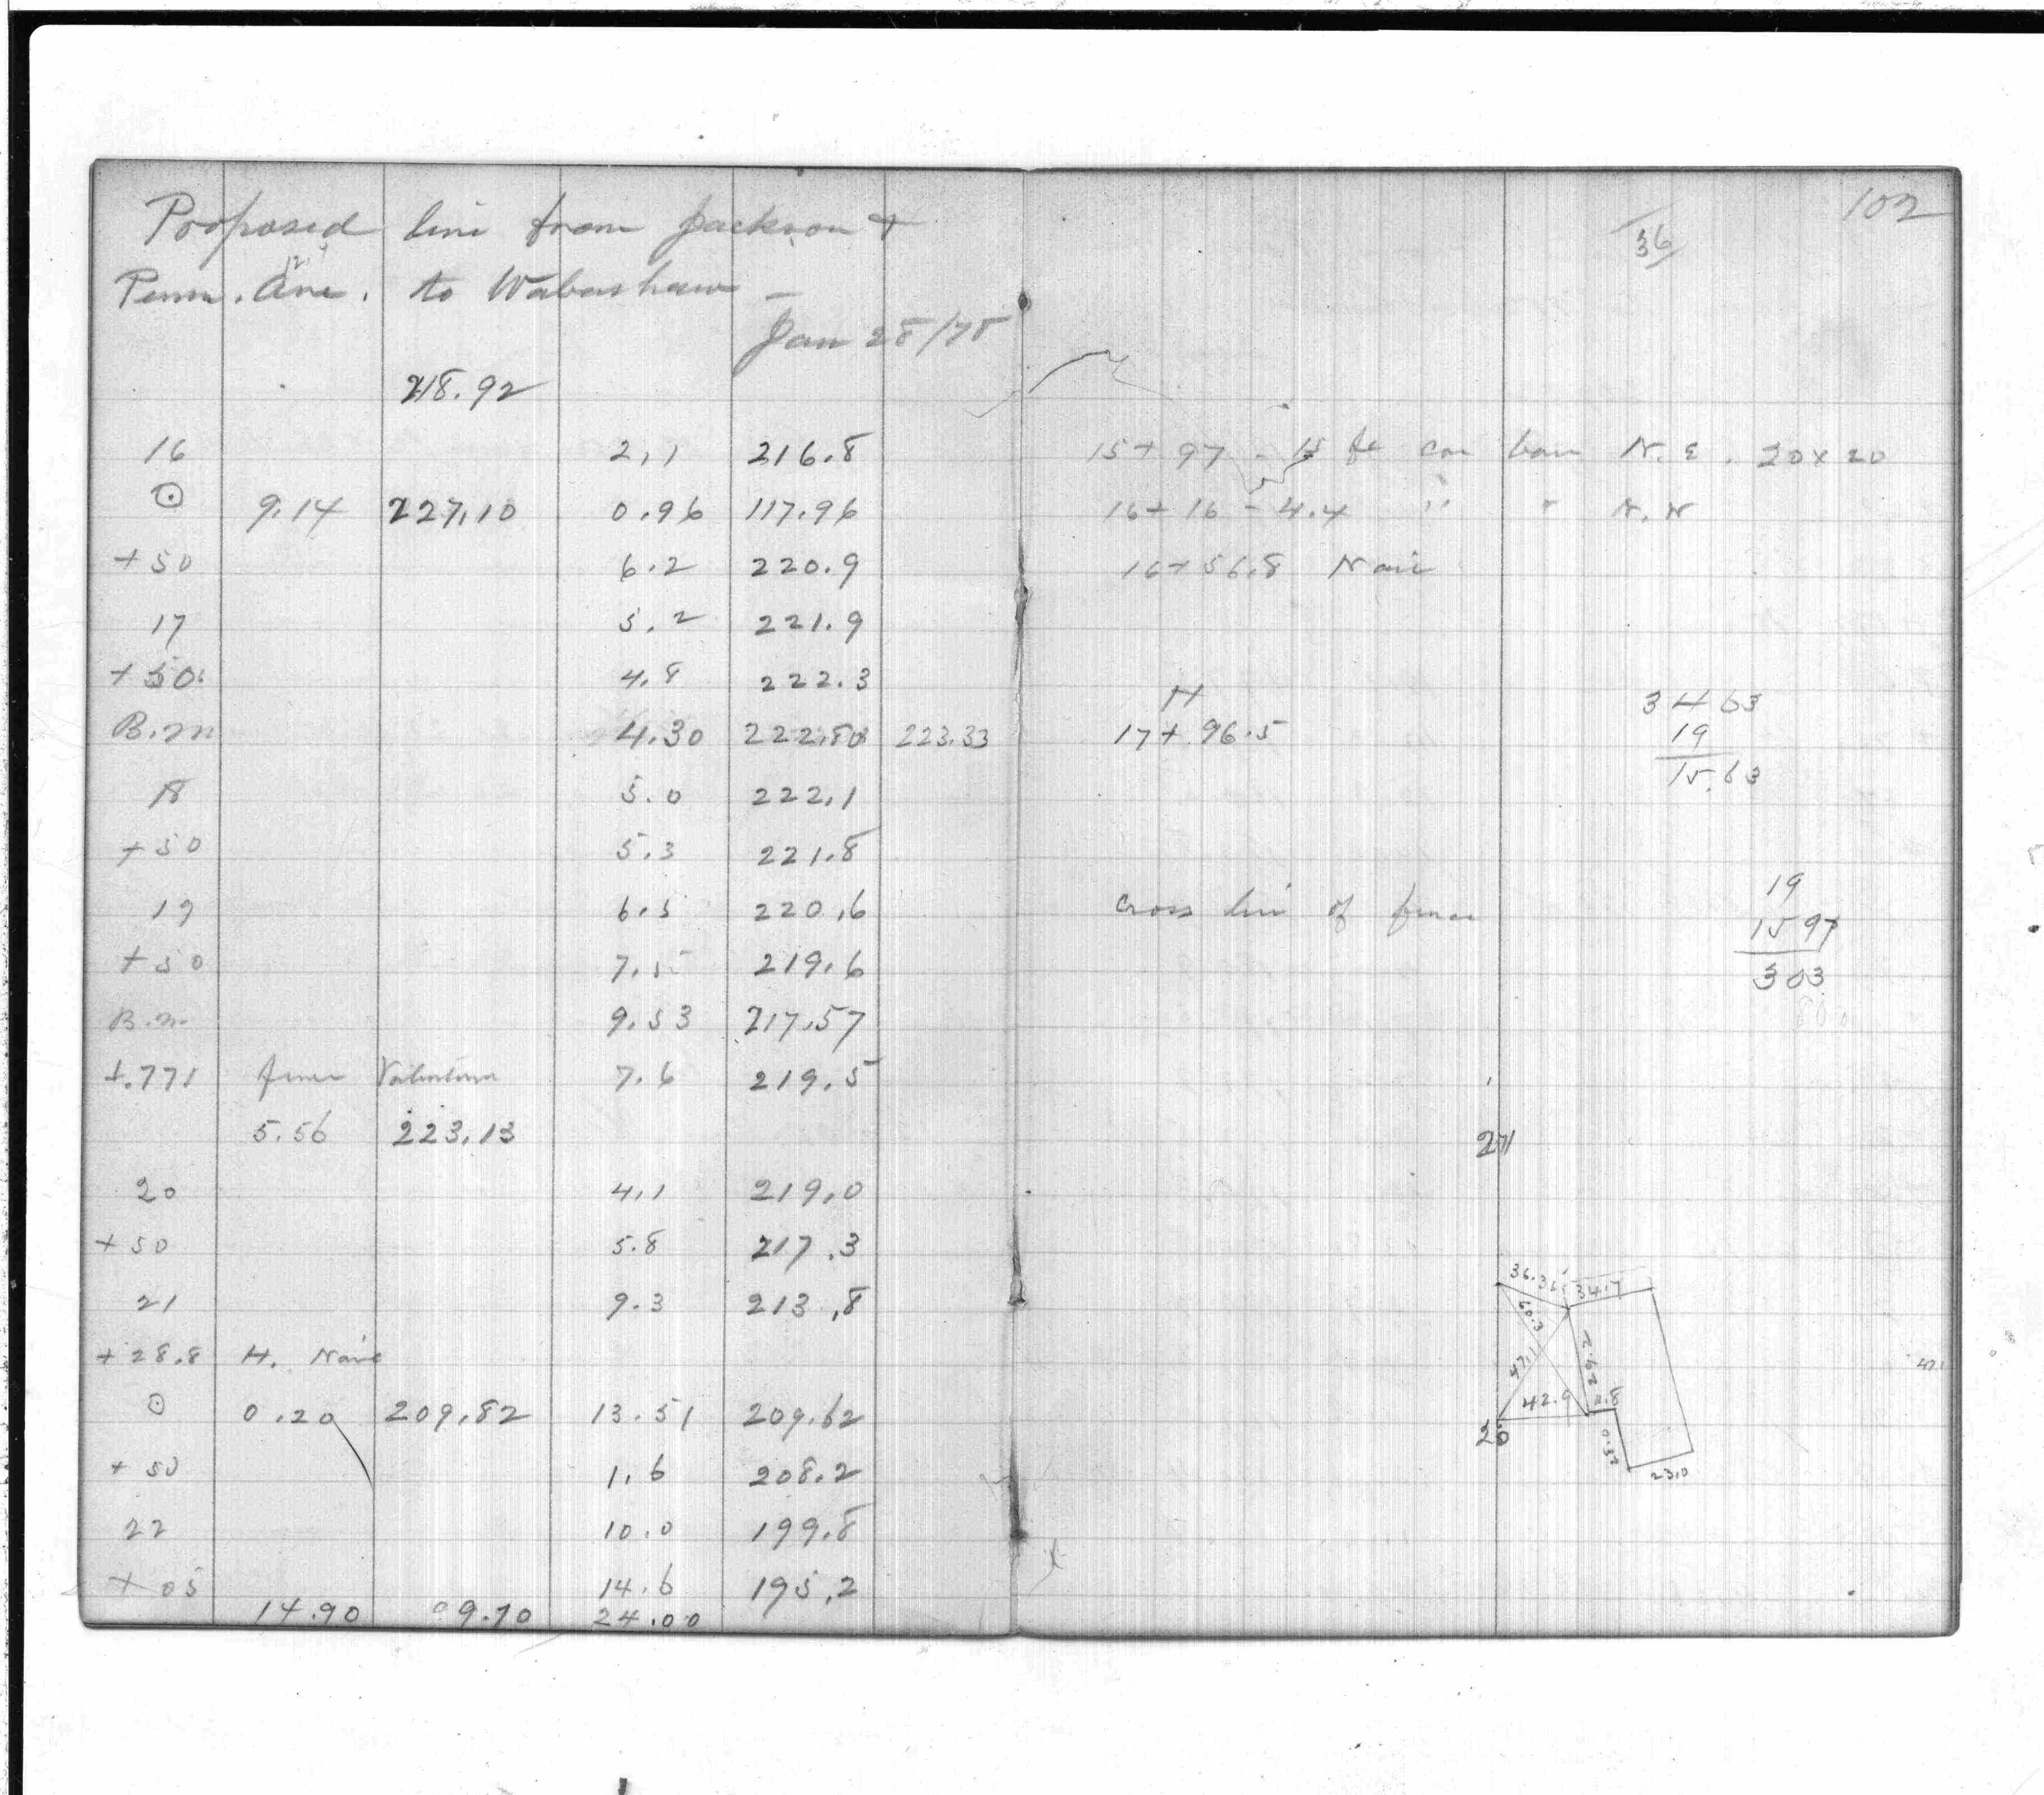 Proposed line from Jackson +
Penn. Ave. to Wabashaw -
Jan 28/75
218.92
16 2.1 216.8
⊙ 9.14 227.10 0.96 117.96
+50 6.2 220.9
17 5.2 221.9
+50. 4.8 222.3
B.M 4.30 222.80 223.33
18 5.0 222.1
+50 5.3 221.8
19 6.5 220.6
+50 7.5 219.6
B.M. 9.53 217.57
+.771 fence 7.6 219.5
5.56 223.13
20 4.1 219.0
+50 5.8 217.3
21 9.3 213.8
+28.8 H. Nail
⊙ 0.20 209.82 13.51 209.62
+50 1.6 208.2
22 10.0 199.8
+05 14.6 195.2
14.90 09.70 24.00
102
36
15+97 - 15 ft cor barn N.E. 20x20
16+16 - 4.4 " " N.W
16+56.8 Nail
H
17+96.5
34 63
19
15.63
cross line of fence
19
15 97
303
271
36.36
34.7
60.3
47.1
29.2
42.9
11.8
26
23.0
47.1